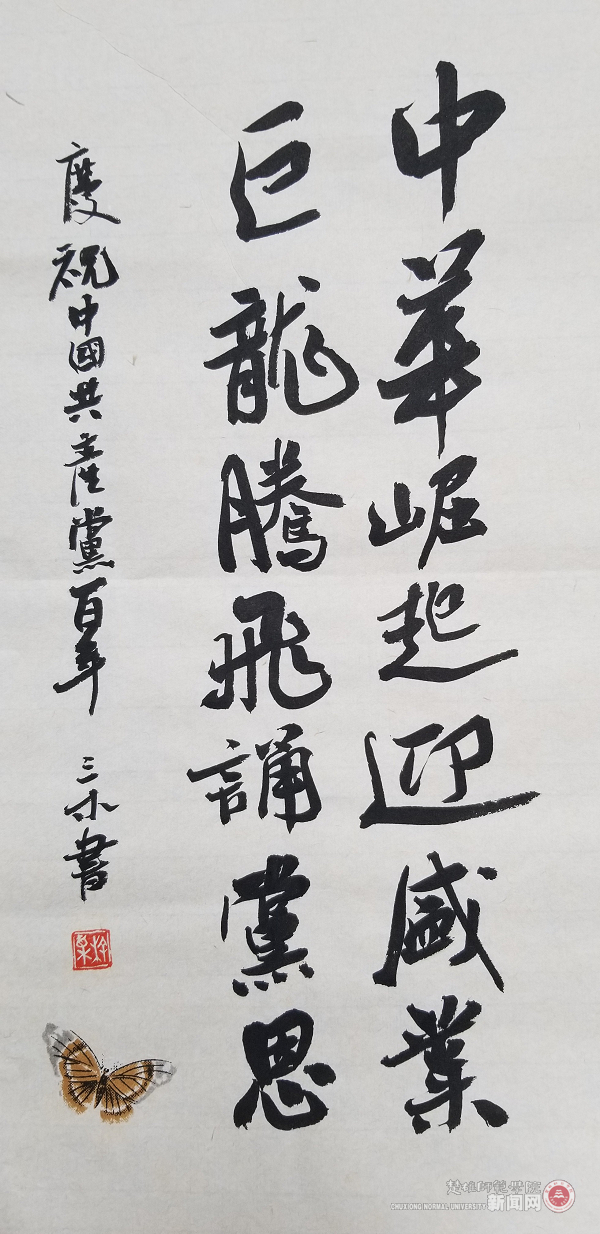 中華崛起迎盛業
巨龍騰飛誦黨恩
慶祝中國共產黨百年
三木書
楚雄師範學院
CHUXIONG NORMAL UNIVERSITY 新闻网